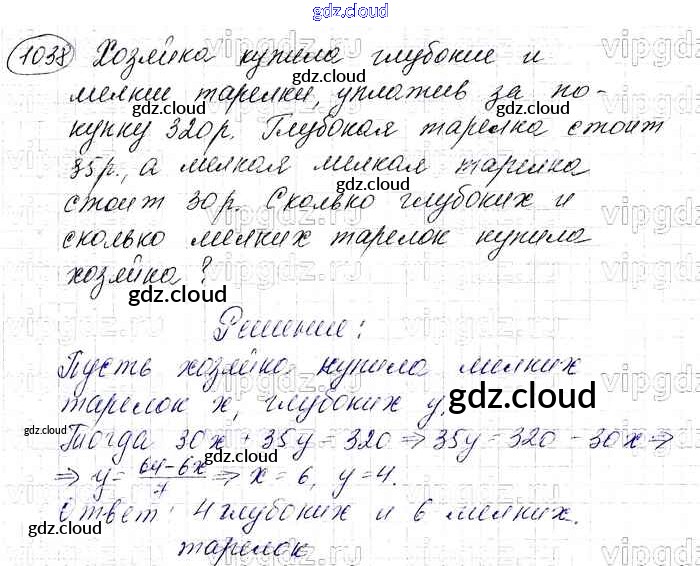 gdz.cloud
1038 Хозяйка купила глубокие и
gdz.cloud
мелкие тарелки, уплатив за по-
купку 320р. Глубокая тарелка стоит
gdz.cloud
35р., а мелкая мелкая тарелка
gdz.cloud
стоит 30р. Сколько глубоких и
сколько мелких тарелок купила
хозяйка?
gdz.cloud
Решение:
Пусть хозяйка купила мелких
тарелок x, глубоких y.
gdz.cloud
gdz.cloud
Тогда 30x + 35y = 320 ⇒ 35y = 320 - 30x ⇒
⇒ y = (64-6x)/7 ⇒ x = 6, y = 4.
gdz.cloud
Ответ: 4 глубоких и 6 мелких.
gdz.cloud
тарелок
vipgdz